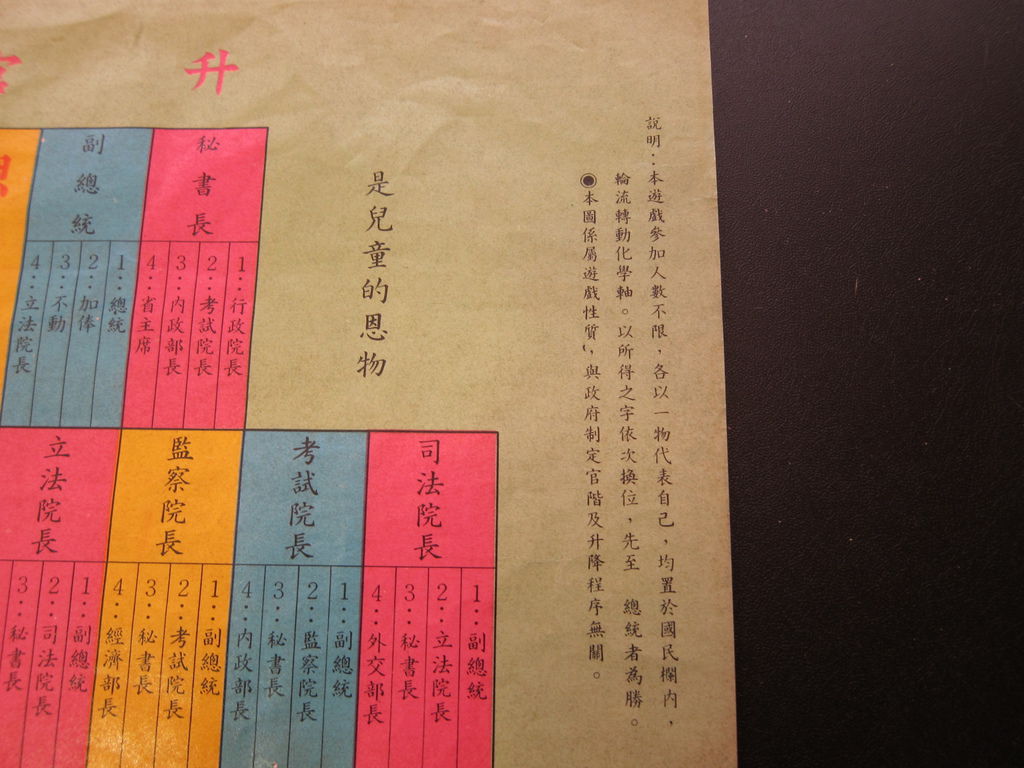 升官
說明：本遊戲參加人數不限，各以一物代表自己，均置於國民欄內，
輪流轉動化學軸。以所得之字依次換位，先至　總統者為勝。
◉本圖係屬遊戲性質，與政府制定官階及升降程序無關。
是兒童的恩物
秘書長
1：行政院長
2：考試院長
3：內政部長
4：省主席
副總統
1：總統
2：加俸
3：不動
4：立法院長
司法院長
1：副總統
2：立法院長
3：秘書長
4：外交部長
考試院長
1：副總統
2：監察院長
3：秘書長
4：內政部長
監察院長
1：副總統
2：考試院長
3：秘書長
4：經濟部長
立法院長
1：副總統
2：司法院長
3：秘書長